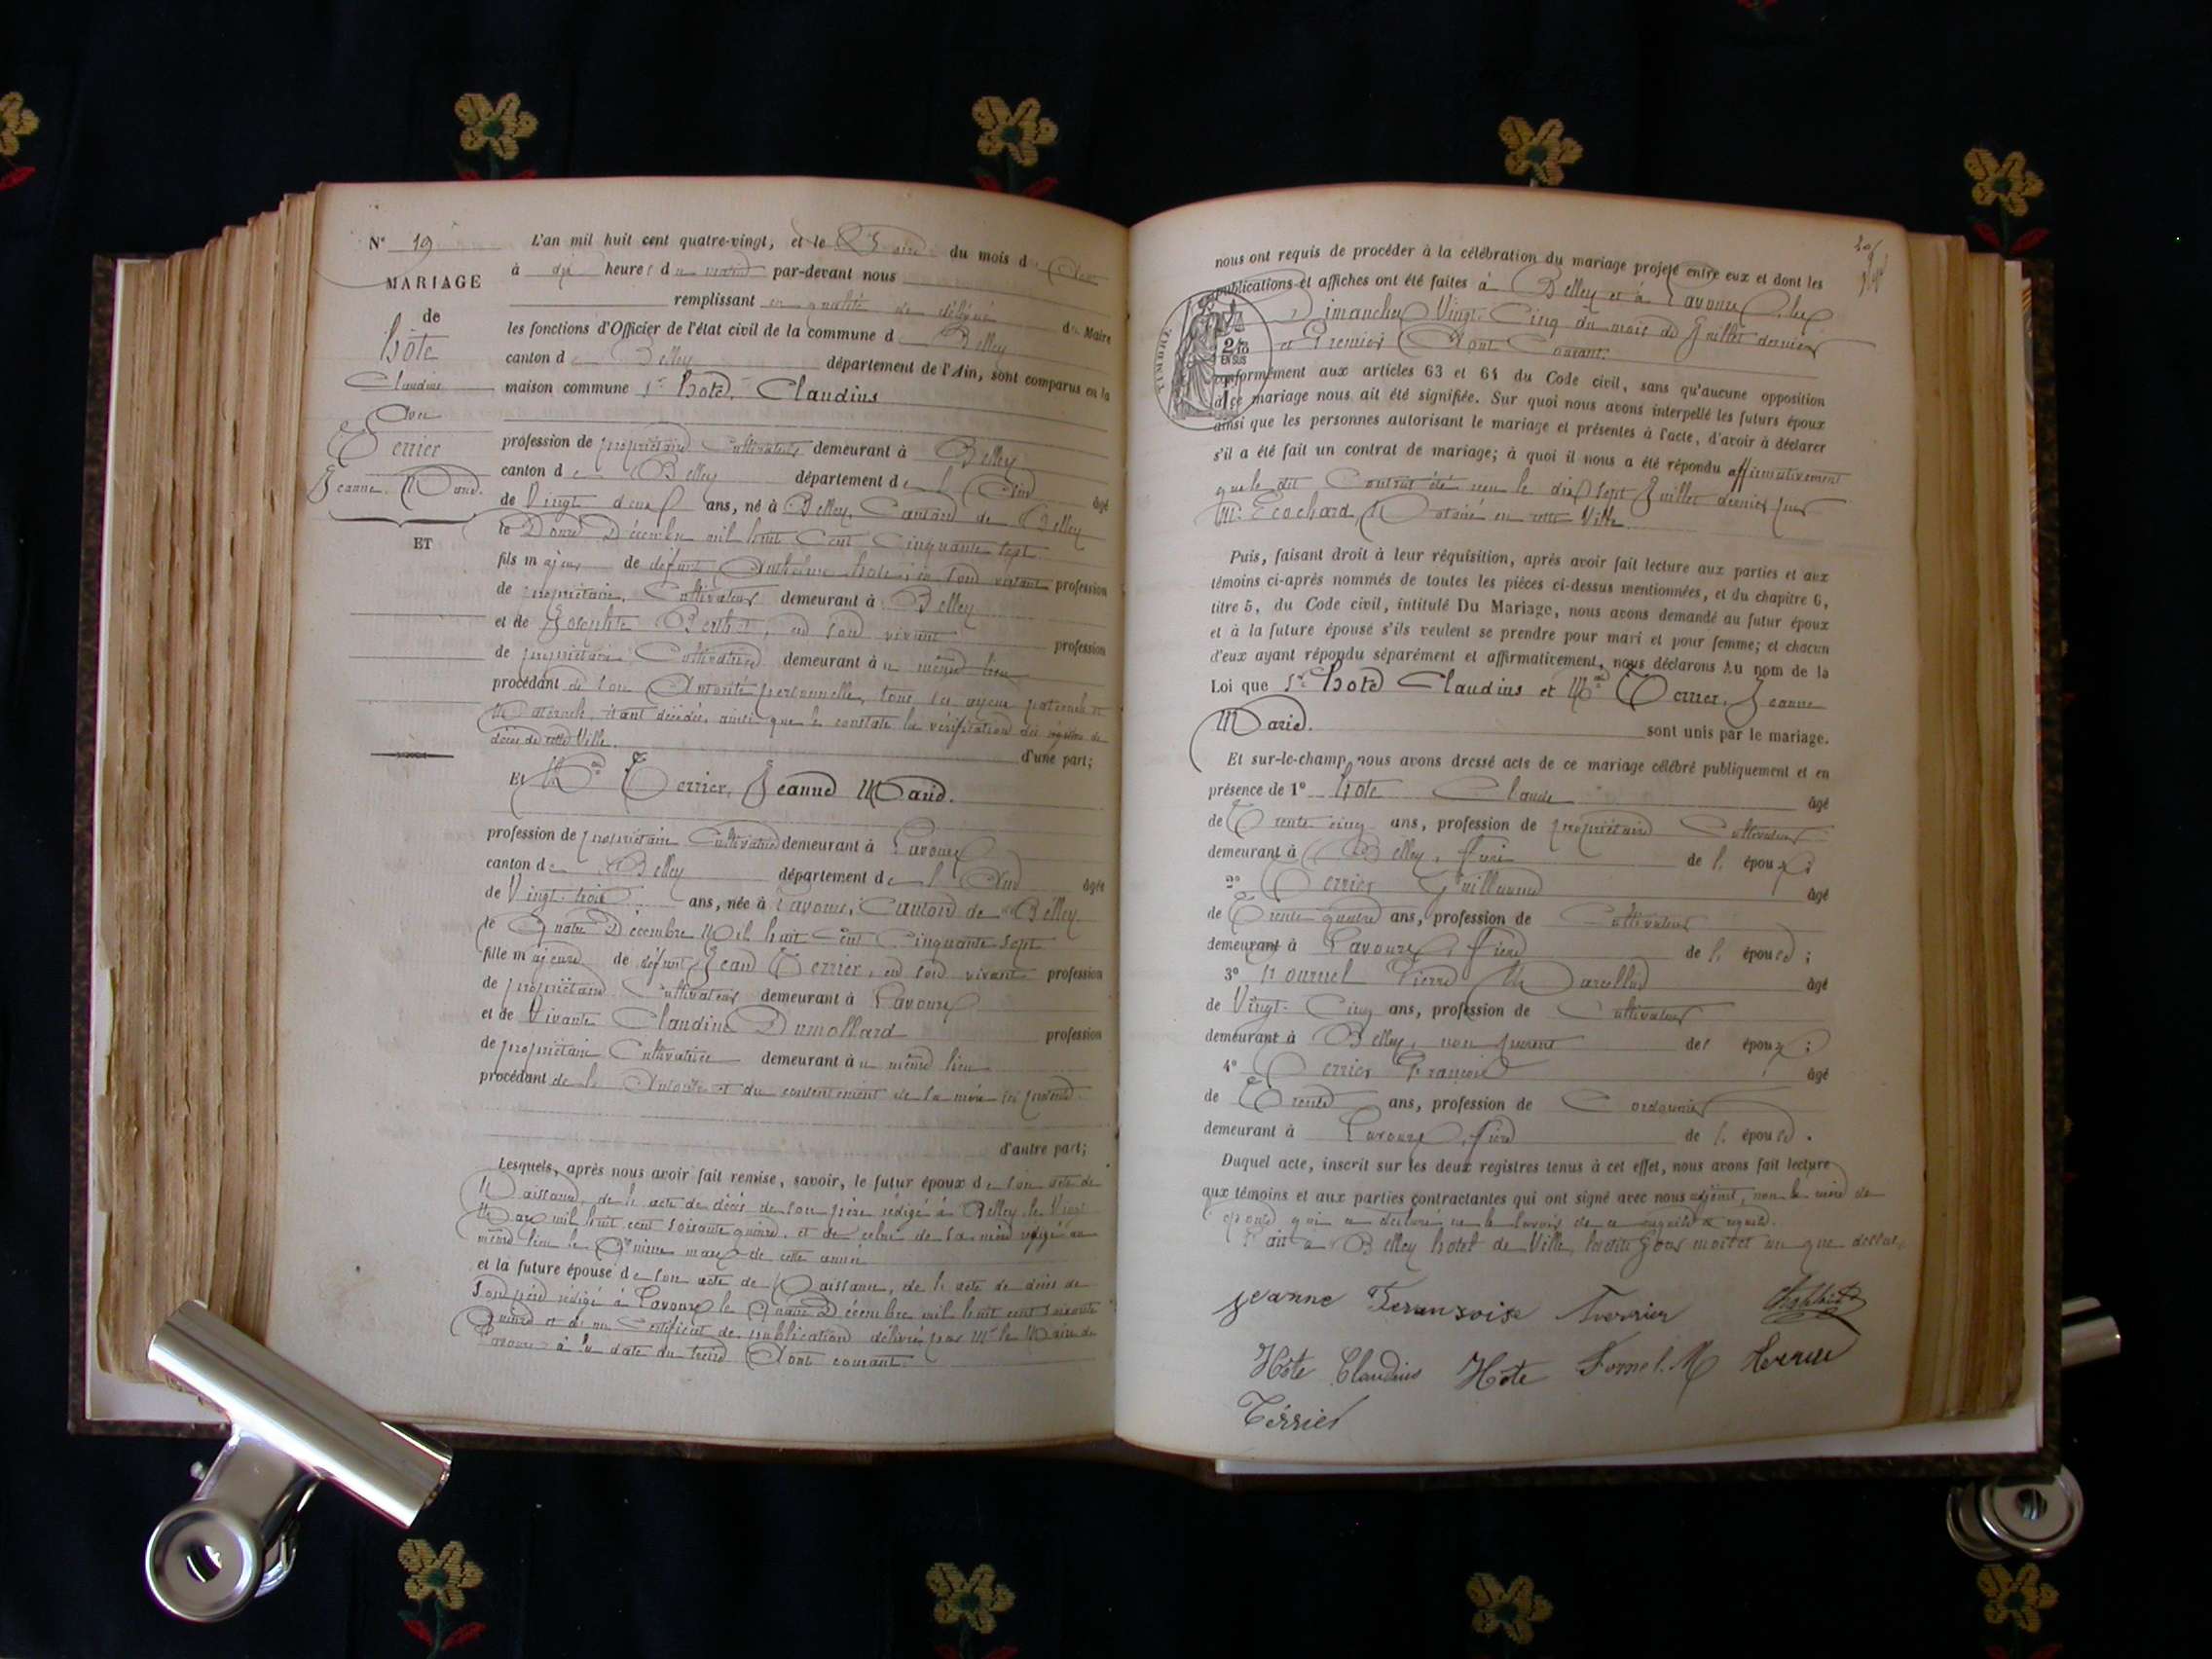 N° 19
MARIAGE
de
hôte
Claudius
Avec
Terrier
Jeanne Marie.
ET
L'an mil huit cent quatre-vingt, et le du mois d Août
à dix heures du matin par-devant nous
remplissant en qualité de délégué du Maire
les fonctions d'Officier de l'état civil de la commune de Belley
canton de Belley département de l'Ain, sont comparus en la
maison commune Sr. hote. Claudius
profession de propriétaire Cultivateur demeurant à Belley
canton de Belley département de l'Ain âgé
de Vingt deux ans, né à Belley, Canton de Belley
le Douze Décembre mil huit Cent Cinquante Sept
fils majeur de défunt Anthelme hote, en son vivant profession
de propriétaire, Cultivateur demeurant à Belley
et de Josephte, en son vivant profession
de propriétaire Cultivatrice demeurant au même lieu
procédant de son Autorité personnelle, tous ses ayeux paternels et
Maternels, étant décédés, ainsi que le constate la vérification des registres de
décès de cette Ville.
d'une part;
Et Melle Terrier, Jeanne Marie.
profession de propriétaire Cultivatrice demeurant à Lavours
canton de Belley département de l'Ain âgée
de Vingt-trois ans, née à Lavours, Canton de Belley
le Quatre Décembre Mil huit Cent Cinquante Sept
fille majeure de défunt Jean Terrier, en son vivant profession
de propriétaire Cultivateur demeurant à Lavours
et de Vivante Claudine Dumollard profession
de propriétaire Cultivatrice demeurant au même lieu
procédant de l'Autorité et du consentement de sa mère ici présente.
d'autre part;
Lesquels, après nous avoir fait remise, savoir, le futur époux de son acte de
Naissance, de l'acte de décès de son père rédigé à Belley le Vingt
Mars mil huit cent soixante quinze, et de celui de sa mère rédigé au
même lieu le Quinze mars de cette année
et la future épouse de son acte de Naissance, de l'acte de décès de
Son père rédigé à Lavours le Quatre Décembre mil huit cent soixante
Quinze et d'un Certificat de publication délivré par Mr le Maire de
Lavours à la date du treize Août courant.
nous ont requis de procéder à la célébration du mariage projeté entre eux et dont les
publications et affiches ont été faites à Belley et à Lavours, les
Dimanches Vingt-Cinq du mois de Juillet dernier
et Premier Août Courant.
TIMBRE
2/10
EN SUS
conformément aux articles 63 et 64 du Code civil, sans qu'aucune opposition
à ce mariage nous ait été signifiée. Sur quoi nous avons interpellé les futurs époux
ainsi que les personnes autorisant le mariage et présentes à l'acte, d'avoir à déclarer
s'il a été fait un contrat de mariage; à quoi il nous a été répondu affirmativement
que le dit Contrat été reçu le dix Sept Juillet dernier par
Me. Ecochard, Notaire en cette Ville
Puis, faisant droit à leur réquisition, après avoir fait lecture aux parties et aux
témoins ci-après nommés de toutes les pièces ci-dessus mentionnées, et du chapitre 6,
titre 5, du Code civil, intitulé Du Mariage, nous avons demandé au futur époux
et à la future épouse s'ils veulent se prendre pour mari et pour femme; et chacun
d'eux ayant répondu séparément et affirmativement, nous déclarons Au nom de la
Loi que Sr. hote Claudius et Melle Terrier, Jeanne
Marie. sont unis par le mariage.
Et sur-le-champ nous avons dressé acte de ce mariage célébré publiquement et en
présence de 1° hote Claude âgé
de Trente cinq ans, profession de propriétaire Cultivateur
demeurant à Belley, frère de l'époux;
2° Terrier Guillaume âgé
de Trente quatre ans, profession de Cultivateur
demeurant à Lavours, frère de l'épouse;
3° Pierre Marcellin âgé
de Vingt-Cinq ans, profession de Cultivateur
demeurant à Belley, non parent des époux;
4° Terrier François âgé
de Trente ans, profession de Cordonnier
demeurant à Lavours, frère de l'épouse.
Duquel acte, inscrit sur les deux registres tenus à cet effet, nous avons fait lecture
aux témoins et aux parties contractantes qui ont signé avec nous adjoint, non la mère de
l'épouse qui a déclaré ne le savoir de ce enquise et requise.
Fait à Belley hotel de Ville, les dits Jour mois et an que dessus.
jeanne Feransoise Terrier
Hôte Claudius Hôte Fornel. M Terrier
Terrier